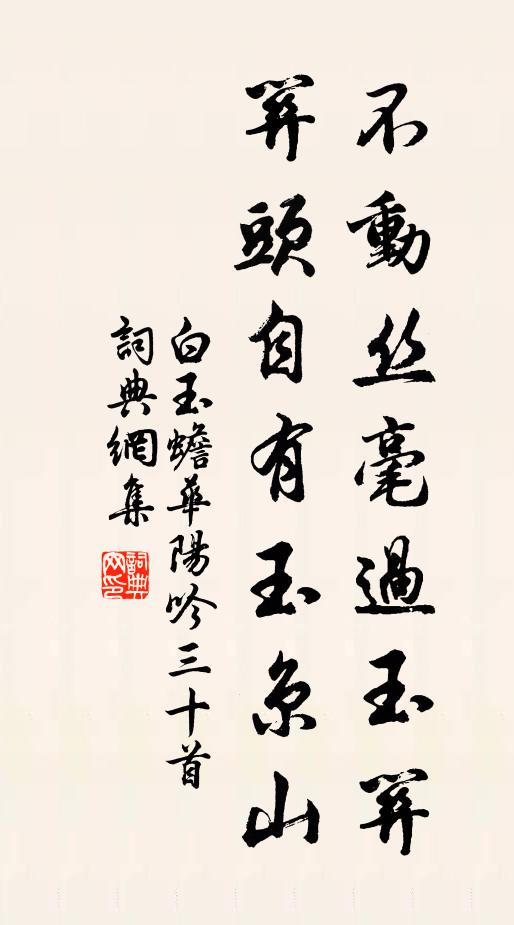 不動丝毫過玉關
關頭自有玉京山
白玉蟾華陽吟三十首
詞典網集
詞典网印